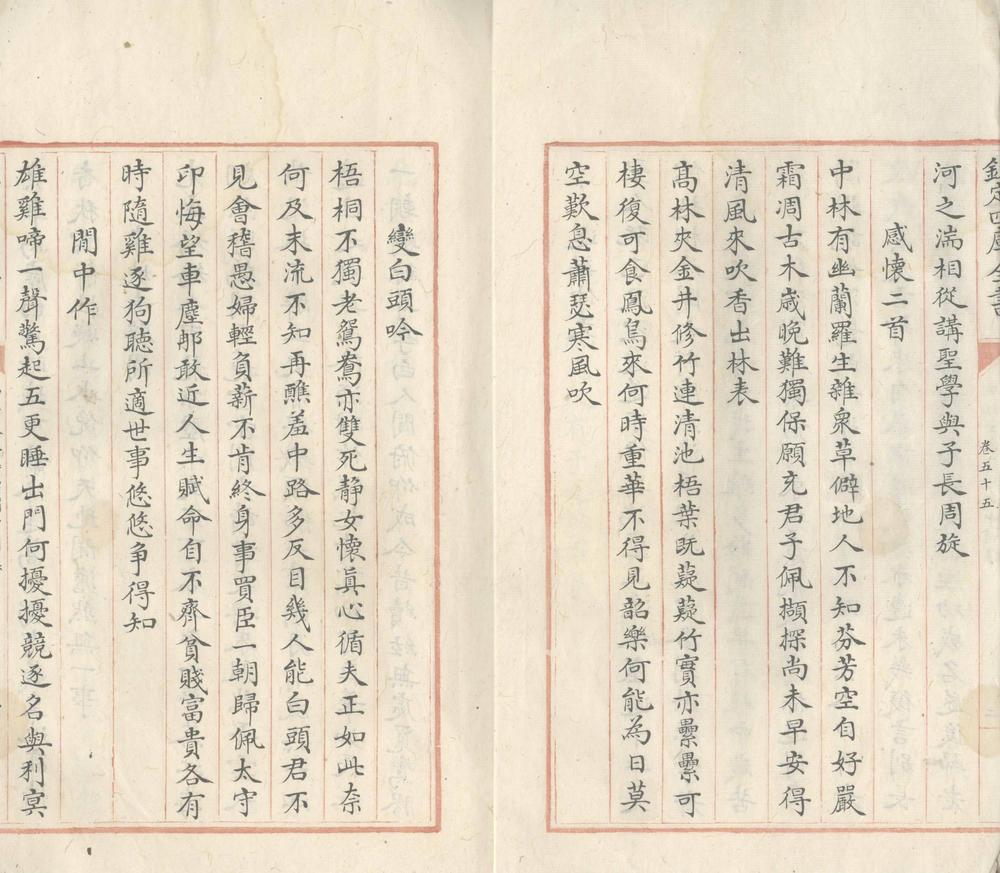 欽定四庫全書
卷五十五
河之湍相從講聖學與子長周旋
感懷二首
中林有幽蘭羅生雜衆草僻地人不知芬芳空自好嚴
霜凋古木歳晩難獨保願充君子佩擷採尚未早安得
清風來吹香出林表
髙林夾金井修竹連清池梧葉既蕤蕤竹實亦纍纍可
棲復可食鳳鳥來何時重華不得見韶樂何能為日莫
空歎息蕭瑟寒風吹
變白頭吟
梧桐不獨老鴛鴦亦雙死静女懷真心循夫正如此奈
何及末流不知再醮羞中路多反目幾人能白頭君不
見會稽愚婦輕負薪不肯終身事買臣一朝歸佩太守
印悔望車塵那敢近人生賦命自不齊貧賤富貴各有
時隨雞逐狗聽所適世事悠悠争得知
閒中作
雄雞啼一聲驚起五更睡出門何擾擾競逐名與利㝠